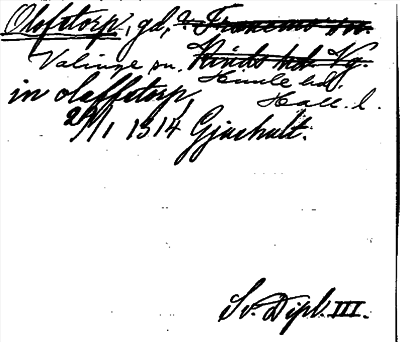 Olofstorp, gd, ? Tranemo sn.
Valinge sn. Kinds hd. Vg.
Himle hd.
in olaffstorp, Hall. l.
29/1 1514 Gjushult.
Sv. Dipl. III.